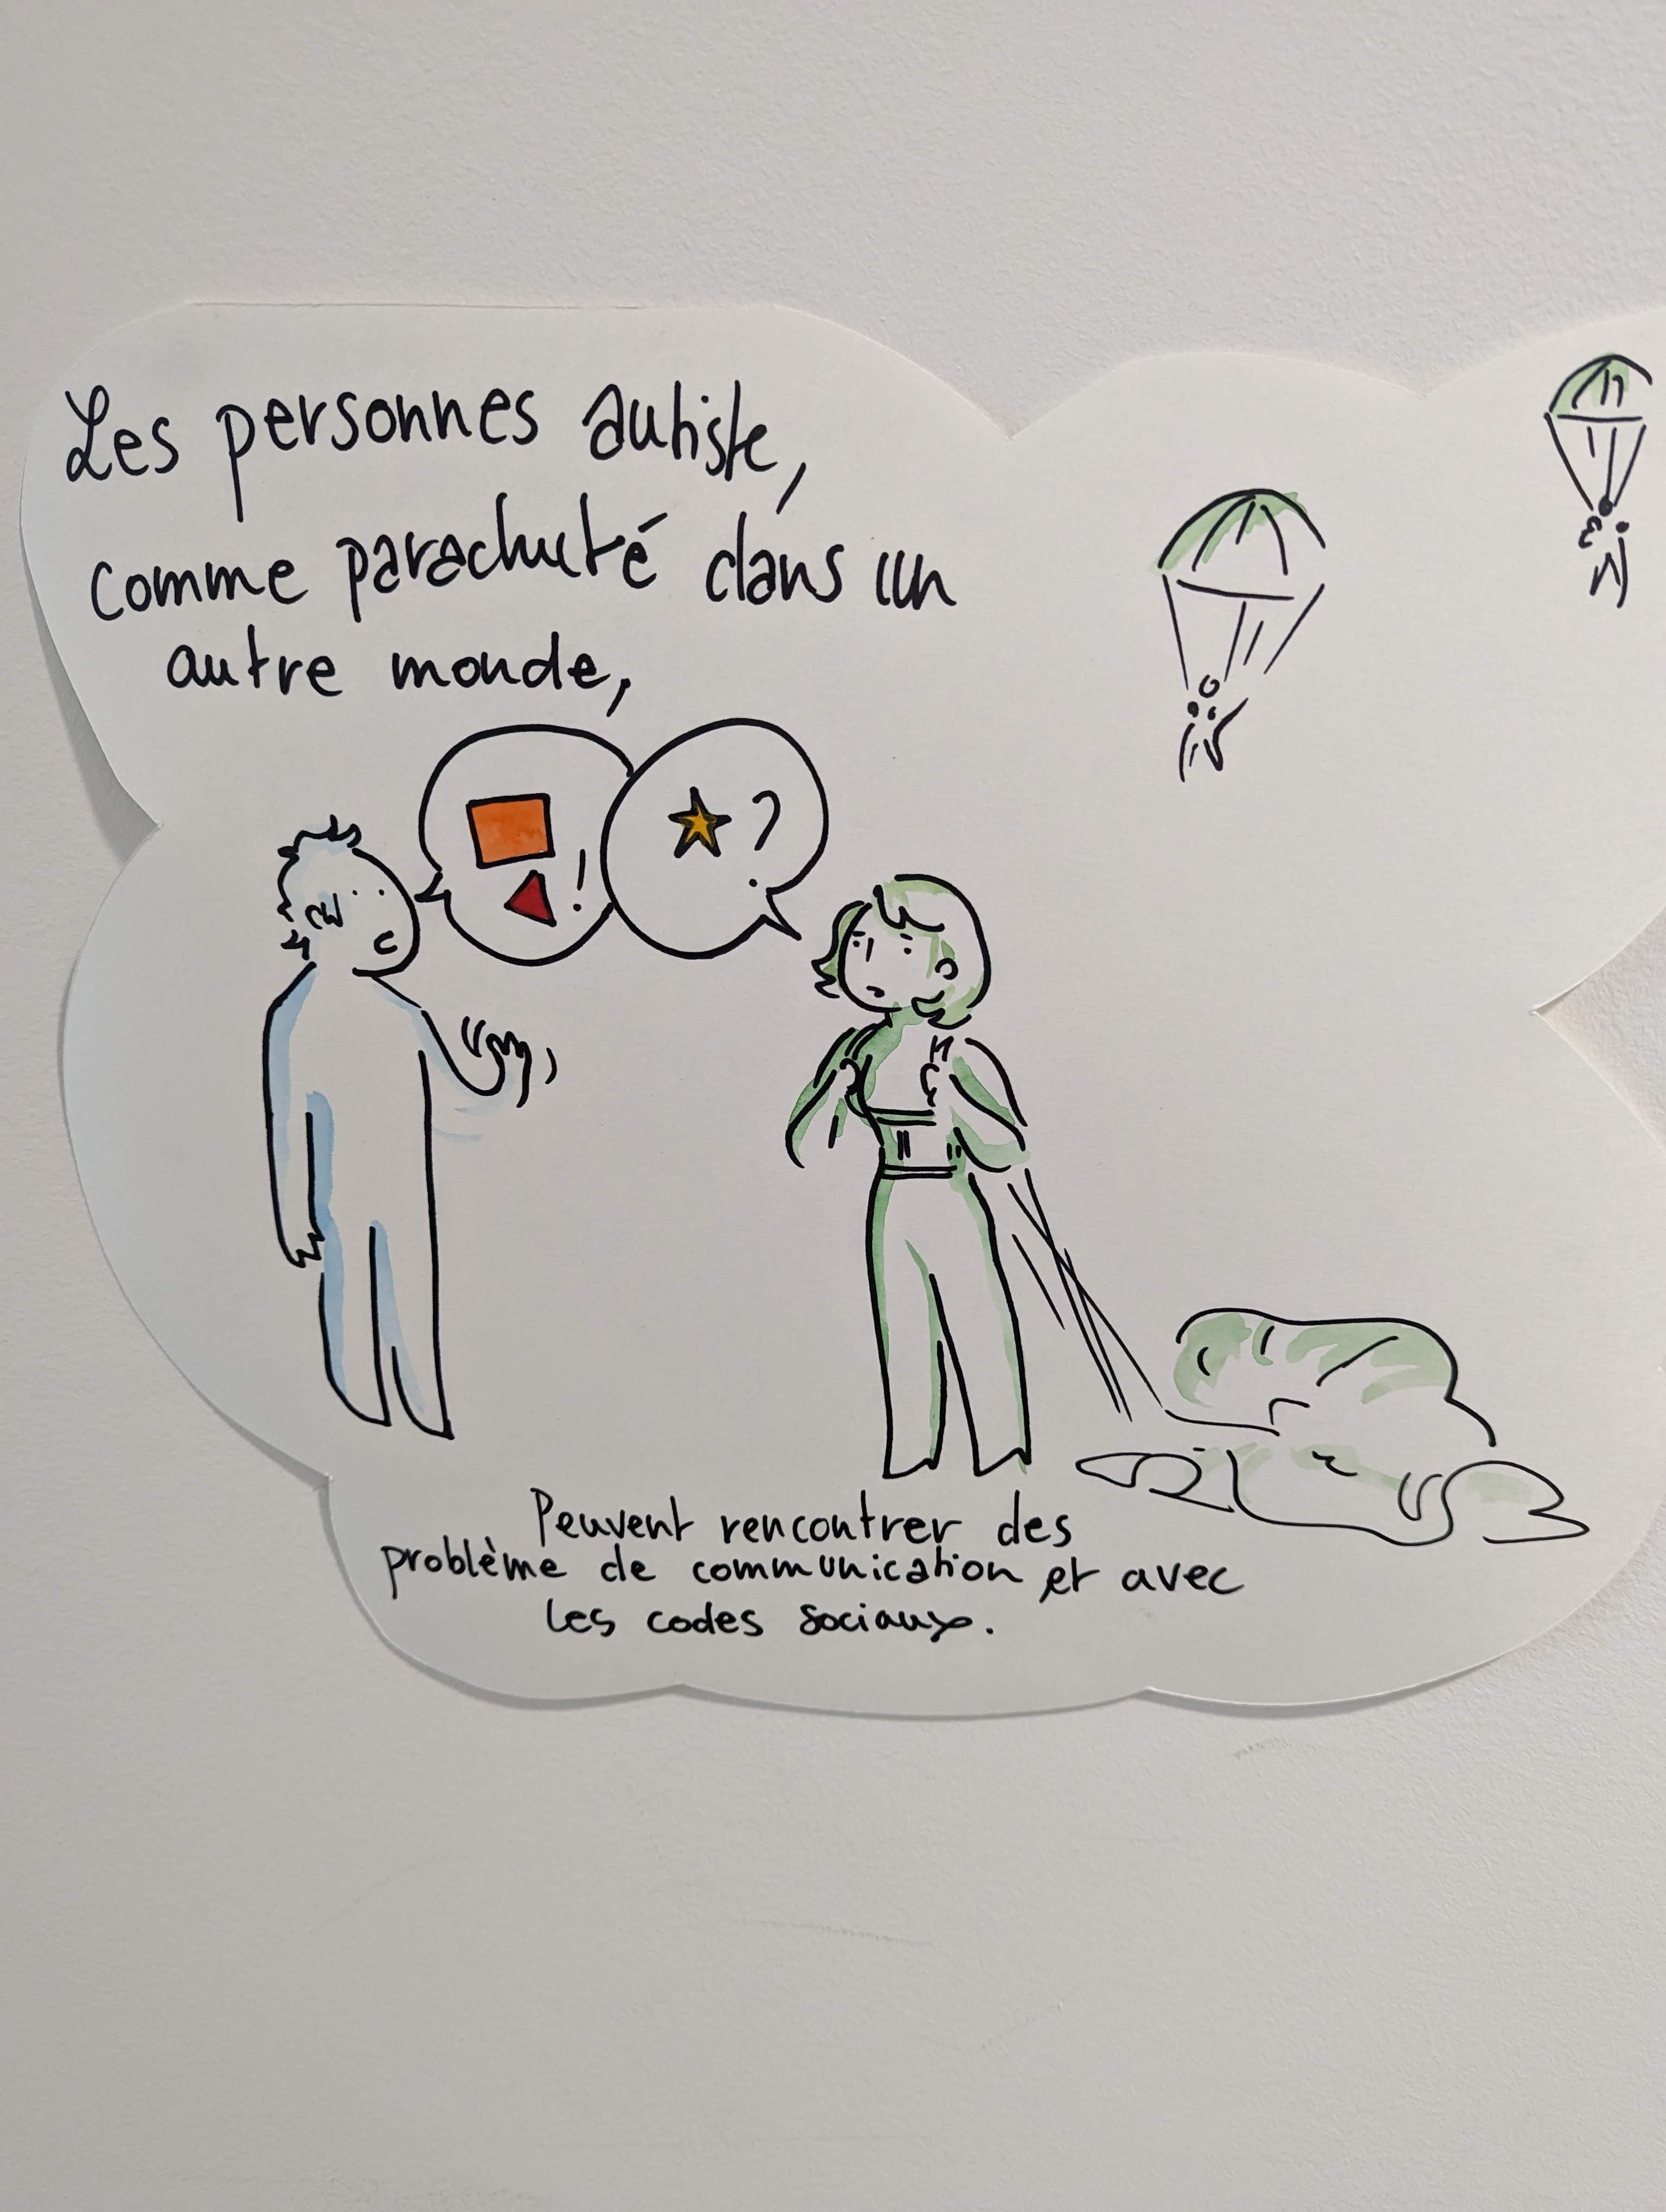 Les personnes autiste,
comme parachuté dans un
autre monde,
!
?
Peuvent rencontrer des
problème de communication et avec
les codes sociaux.